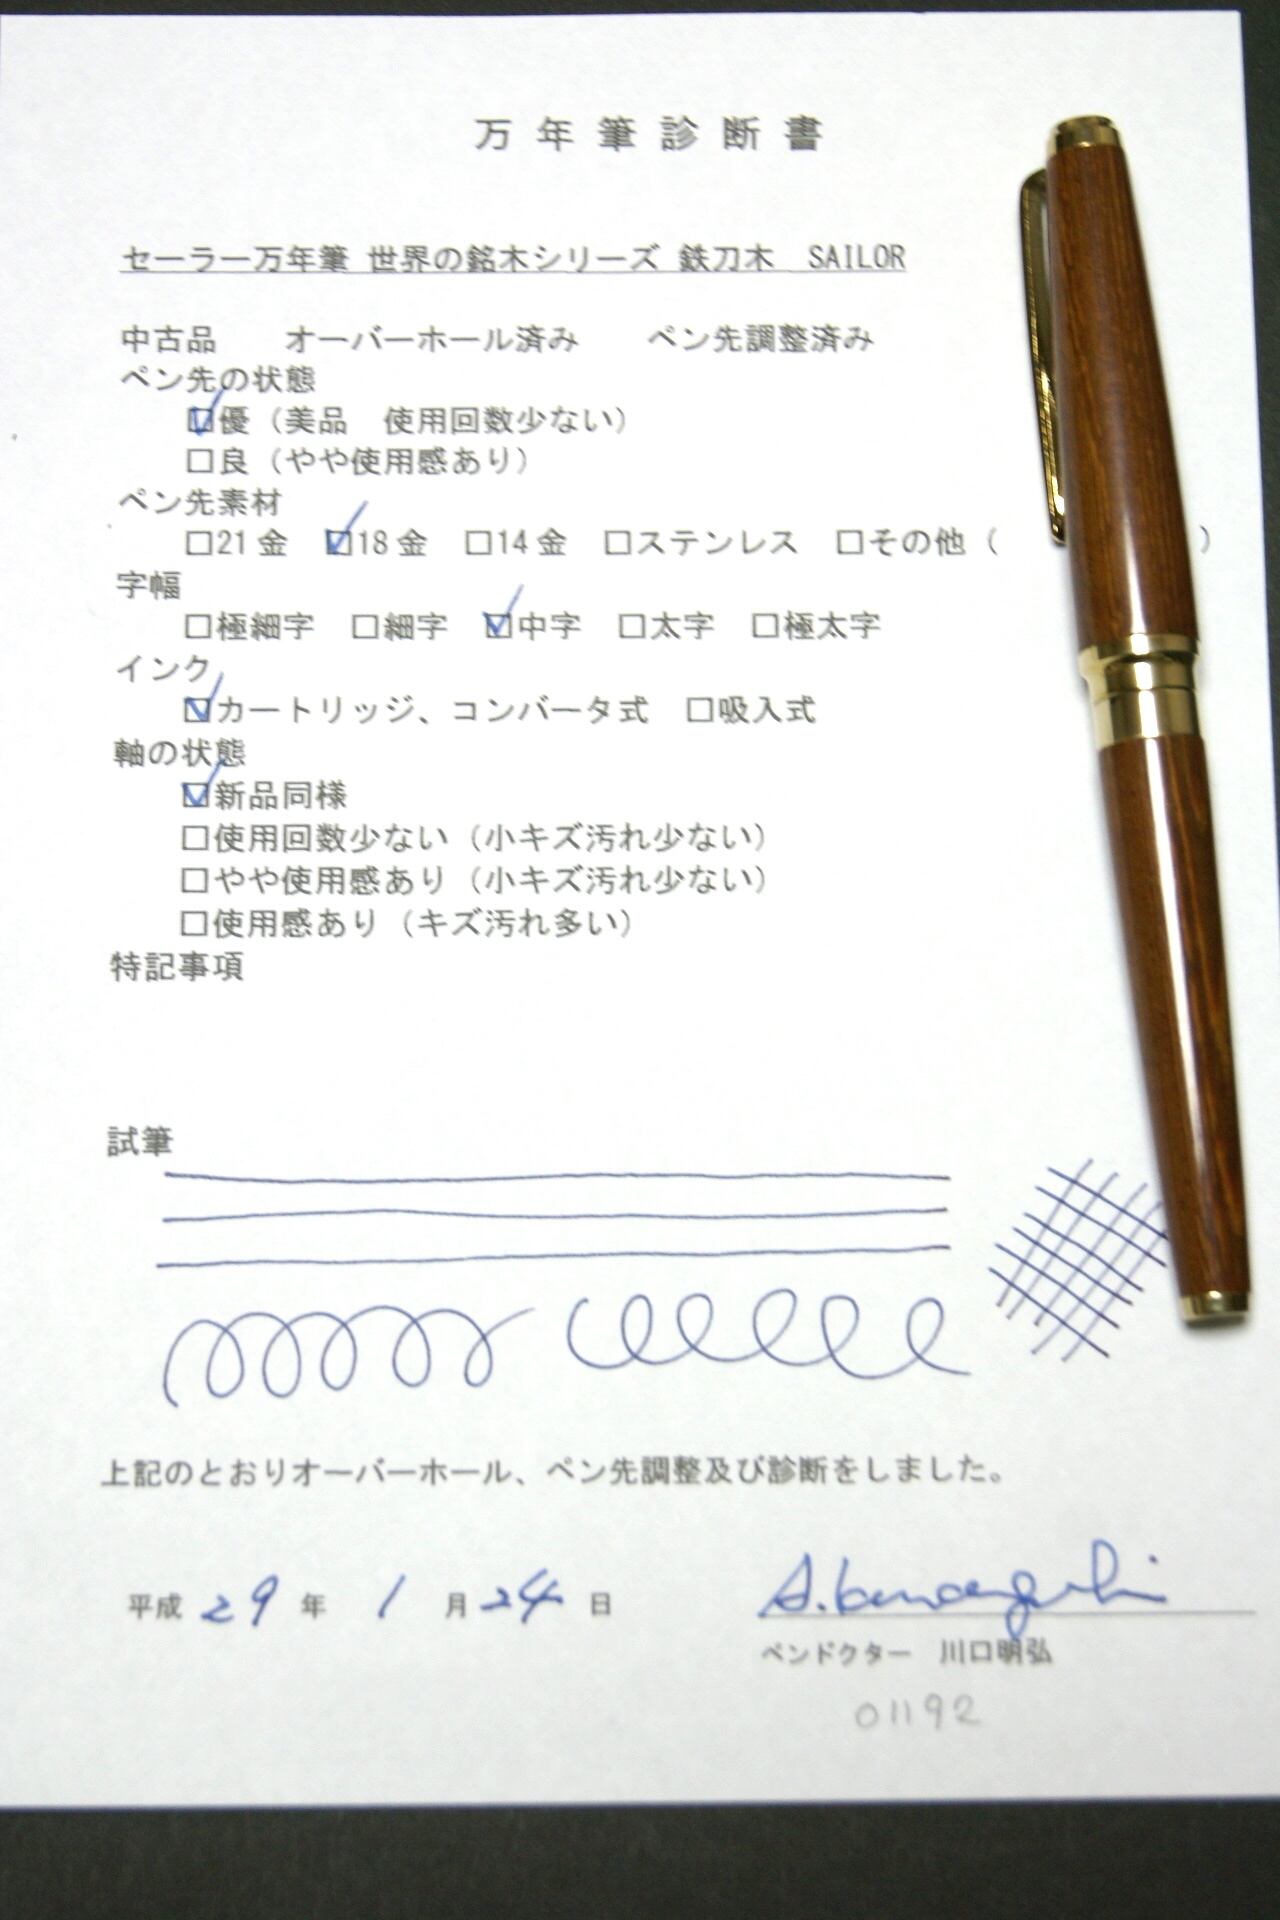 万年筆診断書
セーラー万年筆 世界の銘木シリーズ 鉄刀木　SAILOR
中古品　　オーバーホール済み　　ペン先調整済み
ペン先の状態
☑優（美品　使用回数少ない）
□良（やや使用感あり）
ペン先素材
□21金　☑18金　□14金　□ステンレス　□その他（　　　）
字幅
□極細字　□細字　☑中字　□太字　□極太字
インク
☑カートリッジ、コンバータ式　□吸入式
軸の状態
☑新品同様
□使用回数少ない（小キズ汚れ少ない）
□やや使用感あり（小キズ汚れ少ない）
□使用感あり（キズ汚れ多い）
特記事項
試筆
上記のとおりオーバーホール、ペン先調整及び診断をしました。
平成 29 年 1 月 24 日
A. Kawaguchi
ペンドクター　川口明弘
01192